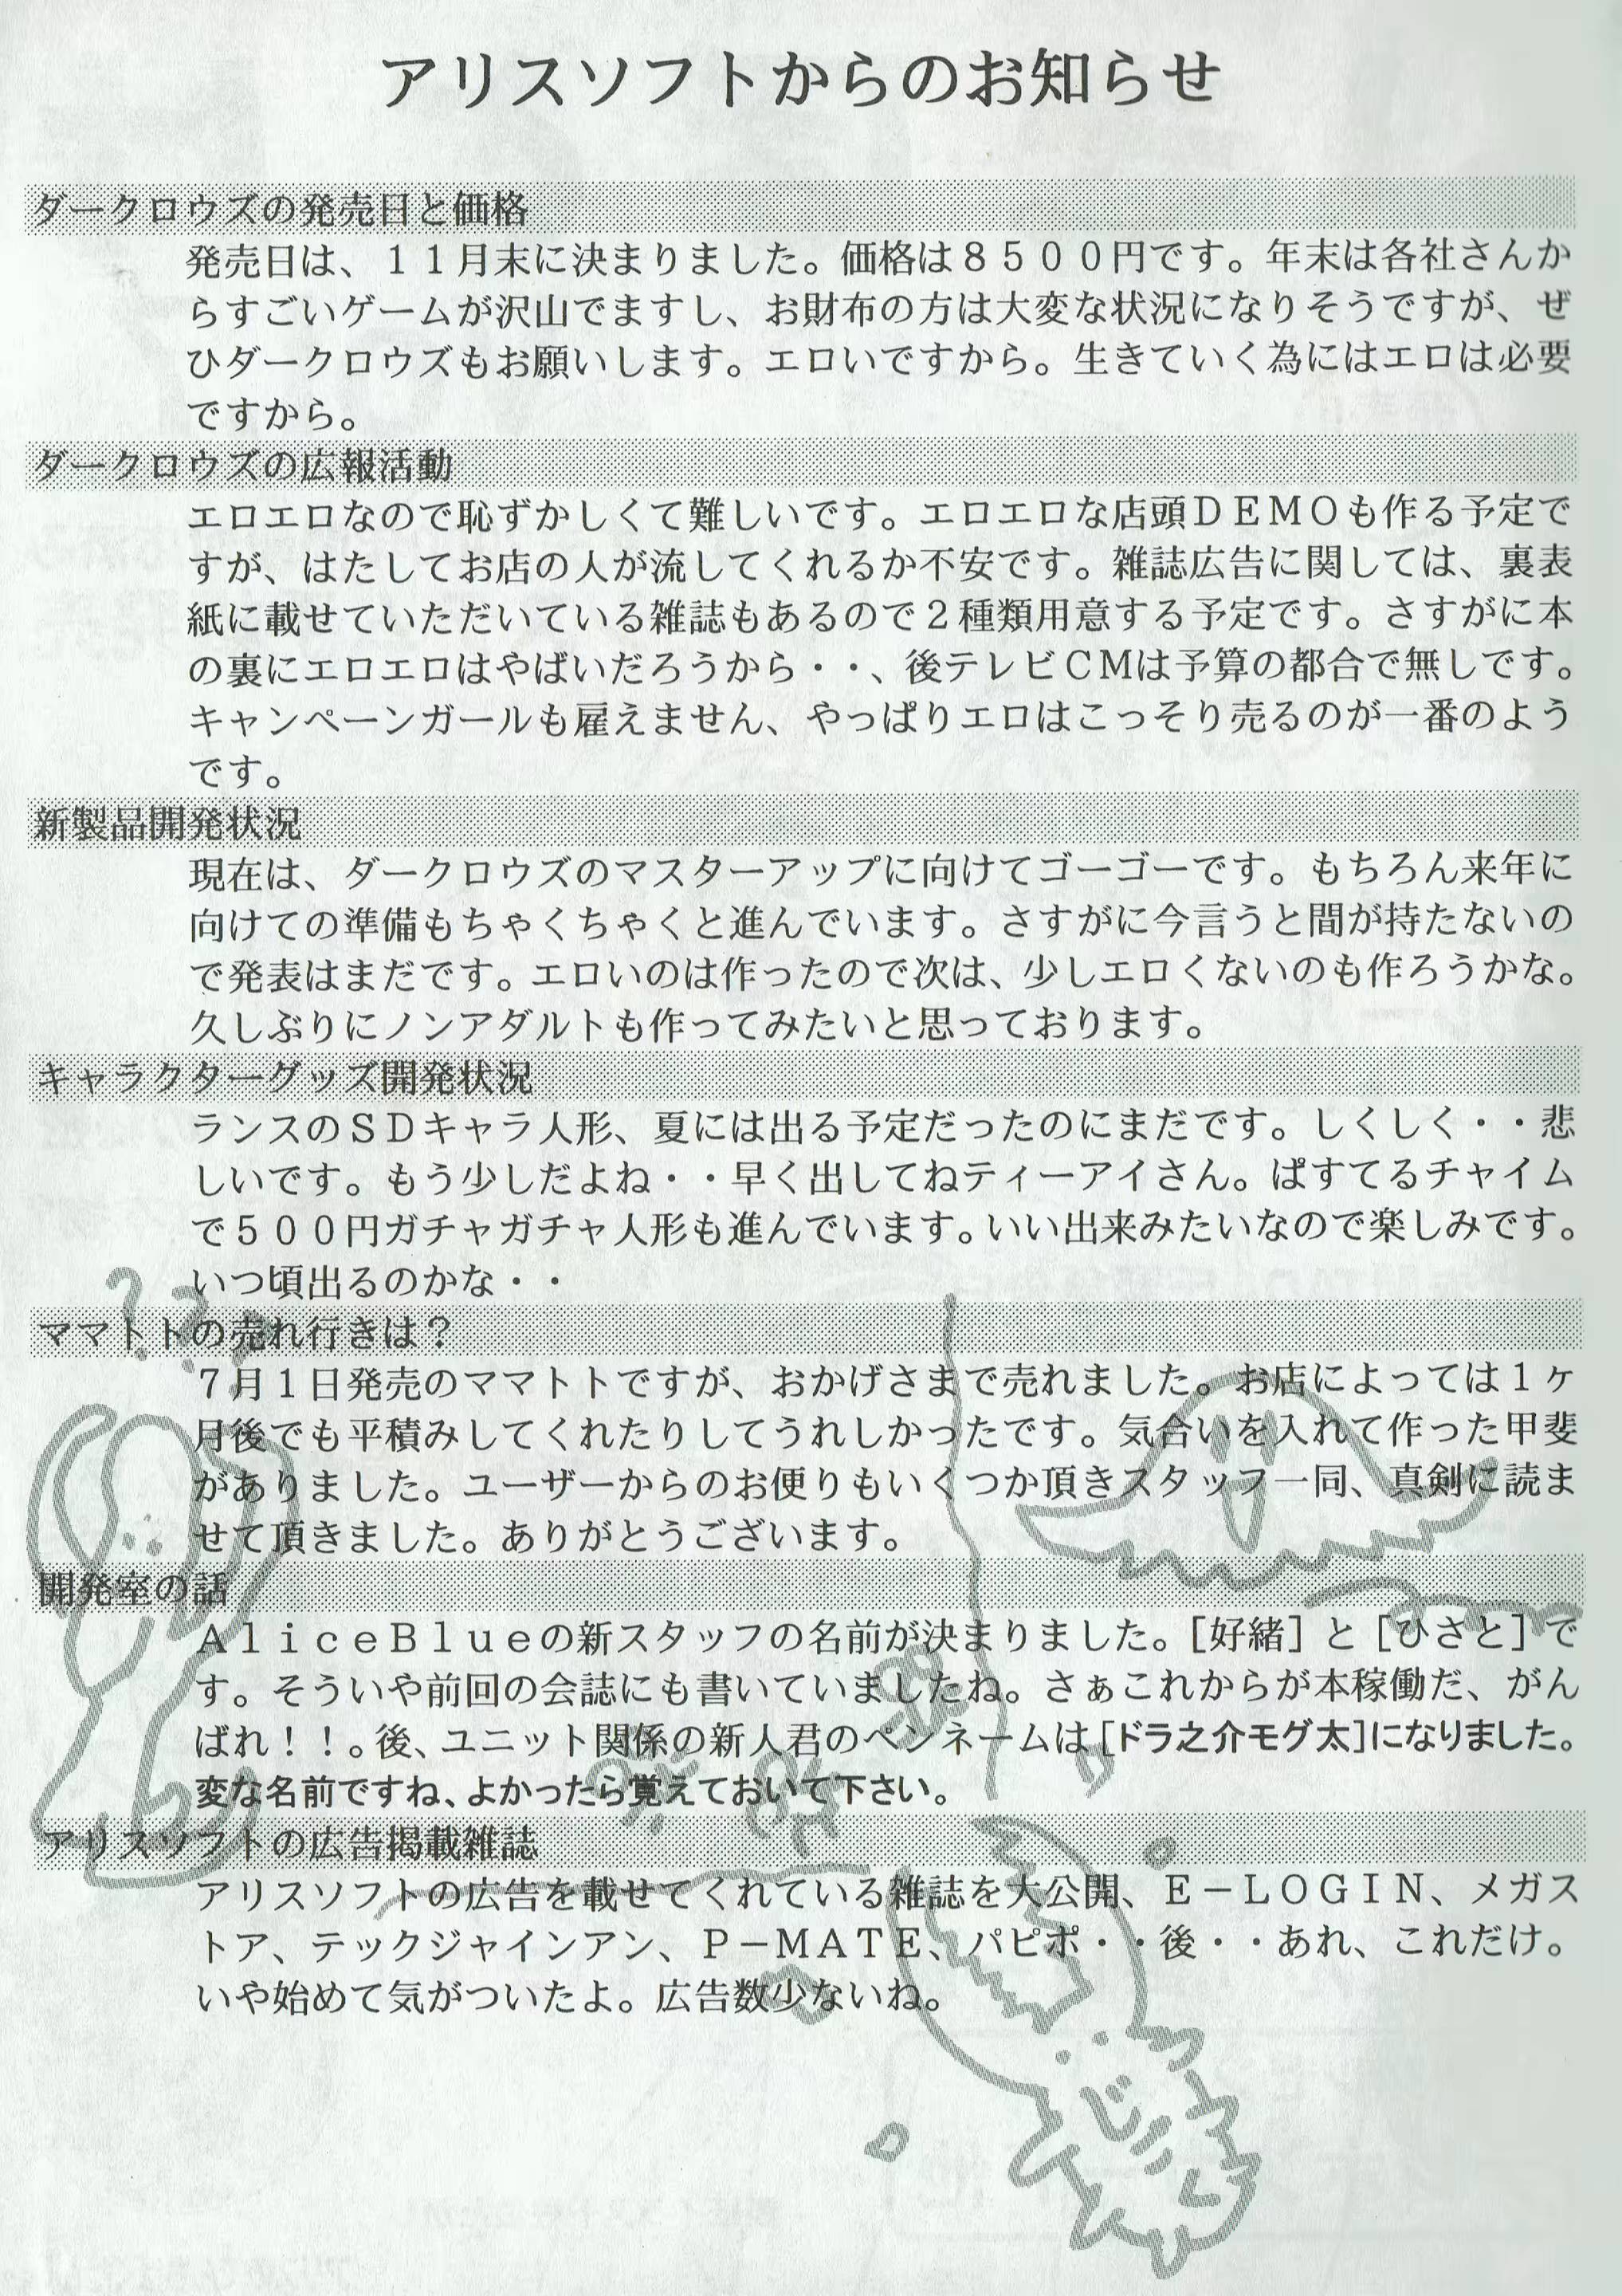 アリスソフトからのお知らせ
ダークロウズの発売目と価格
発売日は、１１月末に決まりました。価格は８５００円です。年末は各社さんか
らすごいゲームが沢山でますし、お財布の方は大変な状況になりそうですが、ぜ
ひダークロウズもお願いします。エロいですから。生きていく為にはエロは必要
ですから。
ダークロウズの広報活動
エロエロなので恥ずかしくて難しいです。エロエロな店頭ＤＥＭＯも作る予定で
すが、はたしてお店の人が流してくれるか不安です。雑誌広告に関しては、裏表
紙に載せていただいている雑誌もあるので２種類用意する予定です。さすがに本
の裏にエロエロはやばいだろうから・・、後テレビＣＭは予算の都合で無しです。
キャンペーンガールも雇えません、やっぱりエロはこっそり売るのが一番のよう
です。
新製品開発状況
現在は、ダークロウズのマスターアップに向けてゴーゴーです。もちろん来年に
向けての準備もちゃくちゃくと進んでいます。さすがに今言うと間が持たないの
で発表はまだです。エロいのは作ったので次は、少しエロくないのも作ろうかな。
久しぶりにノンアダルトも作ってみたいと思っております。
キャラクターグッズ開発状況
ランスのＳＤキャラ人形、夏には出る予定だったのにまだです。しくしく・・悲
しいです。もう少しだよね・・早く出してねティーアイさん。ぱすてるチャイム
で５００円ガチャガチャ人形も進んでいます。いい出来みたいなので楽しみです。
いつ頃出るのかな・・
ママトトの売れ行きは？
７月１日発売のママトトですが、おかげさまで売れました。お店によっては１ヶ
月後でも平積みしてくれたりしてうれしかったです。気合いを入れて作った甲斐
がありました。ユーザーからのお便りもいくつか頂きスタッフ一同、真剣に読ま
せて頂きました。ありがとうございます。
開発室の話
ＡｌｉｃｅＢｌｕｅの新スタッフの名前が決まりました。［好緒］と［ひさと］で
す。そういや前回の会誌にも書いていましたね。さぁこれからが本稼働だ、がん
ばれ！！。後、ユニット関係の新人君のペンネームは［ドラ之介モグ太］になりました。
変な名前ですね、よかったら覚えておいて下さい。
アリスソフトの広告掲載雑誌
アリスソフトの広告を載せてくれている雑誌を大公開、Ｅ－ＬＯＧＩＮ、メガス
トア、テックジャインアン、Ｐ－ＭＡＴＥ、パピポ・・後・・あれ、これだけ。
いや始めて気がついたよ。広告数少ないね。